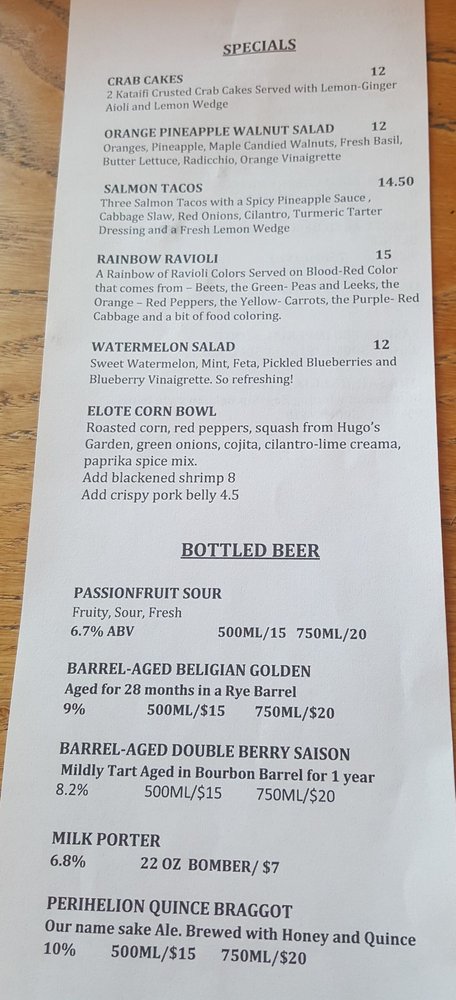 SPECIALS
CRAB CAKES 12
2 Kataifi Crusted Crab Cakes Served with Lemon-Ginger
Aioli and Lemon Wedge
ORANGE PINEAPPLE WALNUT SALAD 12
Oranges, Pineapple, Maple Candied Walnuts, Fresh Basil,
Butter Lettuce, Radicchio, Orange Vinaigrette
SALMON TACOS 14.50
Three Salmon Tacos with a Spicy Pineapple Sauce ,
Cabbage Slaw, Red Onions, Cilantro, Turmeric Tarter
Dressing and a Fresh Lemon Wedge
RAINBOW RAVIOLI 15
A Rainbow of Ravioli Colors Served on Blood-Red Color
that comes from – Beets, the Green- Peas and Leeks, the
Orange – Red Peppers, the Yellow- Carrots, the Purple- Red
Cabbage and a bit of food coloring.
WATERMELON SALAD 12
Sweet Watermelon, Mint, Feta, Pickled Blueberries and
Blueberry Vinaigrette. So refreshing!
ELOTE CORN BOWL
Roasted corn, red peppers, squash from Hugo's
Garden, green onions, cojita, cilantro-lime creama,
paprika spice mix.
Add blackened shrimp 8
Add crispy pork belly 4.5
BOTTLED BEER
PASSIONFRUIT SOUR
Fruity, Sour, Fresh
6.7% ABV 500ML/15 750ML/20
BARREL-AGED BELIGIAN GOLDEN
Aged for 28 months in a Rye Barrel
9% 500ML/$15 750ML/$20
BARREL-AGED DOUBLE BERRY SAISON
Mildly Tart Aged in Bourbon Barrel for 1 year
8.2% 500ML/$15 750ML/$20
MILK PORTER
6.8% 22 OZ BOMBER/ $7
PERIHELION QUINCE BRAGGOT
Our name sake Ale. Brewed with Honey and Quince
10% 500ML/$15 750ML/$20